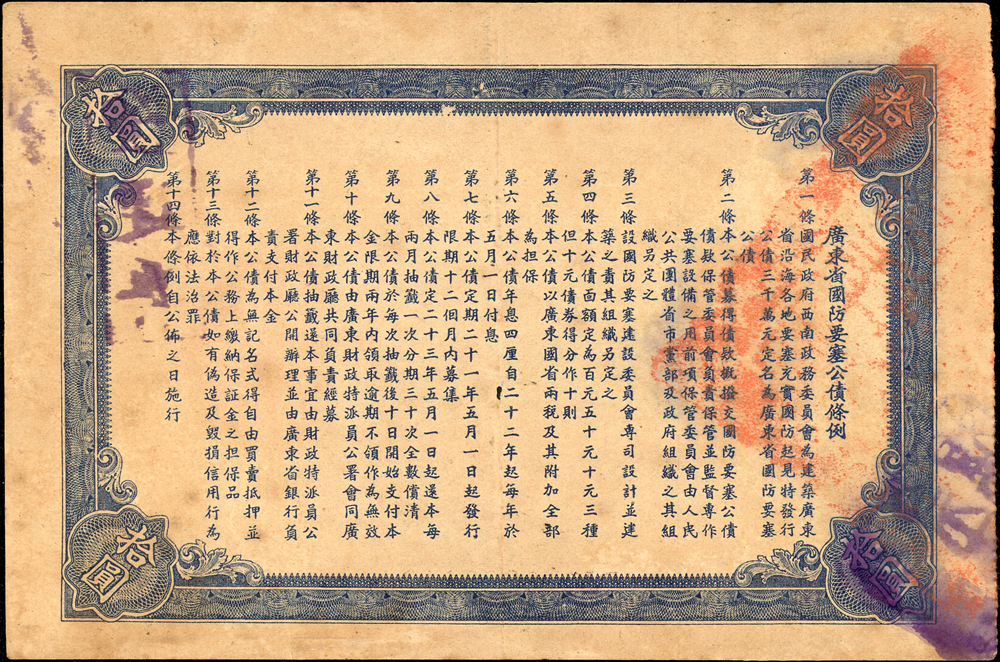 拾圓
廣東省國防要塞公債條例
第一條國民政府西南政務委員會為建築廣東
省沿海各地要塞充實國防起見特發行
公債三千萬元定名為廣東省國防要塞
公債
第二條本公債募得債款概撥交國防要塞公債
債款保管委員會負責保管並監督專作
要塞設備之用前項保管委員會由人民
公共團體省市黨部及政府組織之其組
織另定之
第三條設國防要塞建設委員會專司設計並建
築之責其組織另定之
第四條本公債面額定為百元五十元十元三種
但十元債券得分作十則
第五條本公債以廣東國省兩稅及其附加全部
為担保
第六條本公債年息四厘自二十二年起每年於
五月一日付息
第七條本公債定期二十一年五月一日起發行
限期十二個月內募集
第八條本公債定二十三年五月一日起還本每
兩月抽籤一次分期三十次全數償清
第九條本公債於每次抽籤後十日開始支付本
金限期兩年內領取逾期不領作為無效
第十條本公債由廣東財政特派員公署會同廣
東財政廳共同負責經募
第十一條本公債抽籤還本事宜由財政特派員公
署財政廳公開辦理並由廣東省銀行負
責支付本金
第十二條本公債為無記名式得自由買賣抵押並
得作公務上繳納保証金之担保品
第十三條對於本公債如有偽造及毀損信用行為
應依法治罪
第十四條本條例自公佈之日施行
拾圓
拾圓
拾圓